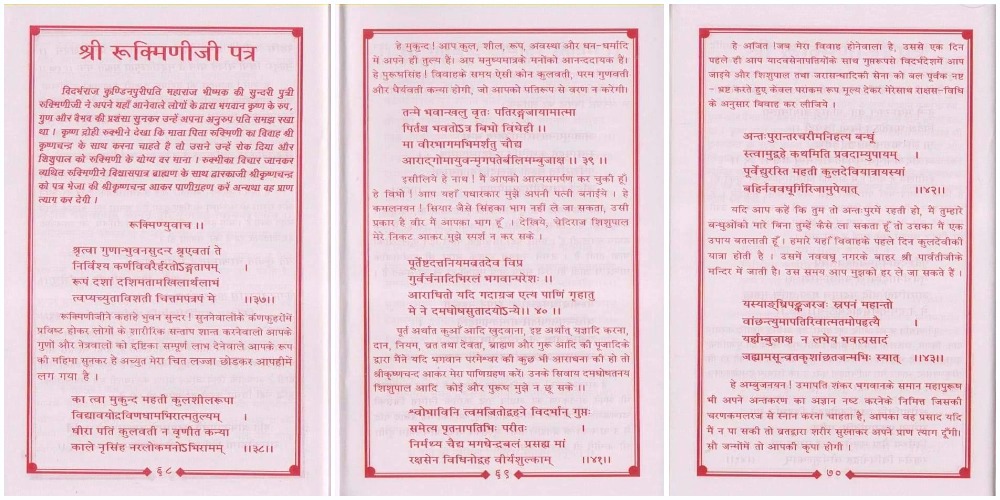 श्री रूक्मिणीजी पत्र
विदर्भराज कुण्डिनपुरीपति महाराज भीष्मक की सुन्दरी पुत्री
रुक्मिणीजी ने अपने यहाँ आनेवाले लोगों के द्वारा भगवान कृष्ण के रुप,
गुण और वैभव की प्रशंसा सुनकर उन्हें अपना अनुरुप पति समझ रखा
था । कृष्ण द्रोही रुक्मीने देखा कि माता पिता रुक्मिणी का विवाह श्री
कृष्णचन्द्र के साथ करना चाहते है तो उसने उन्हें रोक दिया और
शिशुपाल को रुक्मिणी के योग्य वर माना । रुक्मीका विचार जानकर
व्यथित रुक्मीणीने विश्वासपात्र ब्राह्मण के साथ द्वारकाजी श्रीकृष्णचन्द्र
को पत्र भेजा की श्रीकृष्णचन्द्र आकर पाणीग्रहण करें अन्यथा वह प्राण
त्याग कर देगी ।
रूक्मिण्युवाच ।।
श्रृत्वा गुणान्भुवनसुन्दर श्रृण्वतां ते
निर्विश्य कर्णविवरैर्हरतोऽङ्गतापम् ।
रूपं दशां दशिमतामखिलार्थलाभं
त्वय्यच्युताविशती चित्तमपत्रपं मे ।।३७।।
रूक्मिणीजीने कहाहे भुवन सुन्दर! सुननेवालोंके कर्णकूहरोंमें
प्रविष्ट होकर लोगों के शारीरिक सन्ताप शान्त करनेवालो आपके
गुणों और नेत्रवालो को द्दष्टिका सम्पूर्ण लाभ देनेवाले आपके रूप
की महिमा सुनकर हे अच्युत मेरा चित लज्जा छोडकर आपहीमें
लग गया है ।
का त्वा मुकुन्द महती कुलशीलरूपा
विद्यावयोदविणघामभिरात्मतुल्यम् ।
घीरा पतिं कुलवती न वृणीत कन्या
काले नृसिंह नरलोकमनोऽभिरामम् ।।३८।।
६८
हे मुकुन्द ! आप कुल, शील, रूप, अवस्था और धन-धर्मादि
में अपने ही तुल्य हैं। आप मनुष्यमात्रके मनोंको आनन्ददायक हैं।
हे पुरूषसिंह! विवाहके समय ऐसी कोन कुलवती, परम गुणवती
और धैर्यवती कन्या होगी, जो आपको पतिरूप से वरण न करेगी।
तन्मे भवान्खलु वृतः पतिरङ्गजायामात्मा
पिर्तश्च भवतोऽत्र बिभो विधेही ।।
मा वीरभागमभिमर्शतु चौद्य
आराद्गोमायुवन्मृगपतेर्बलिमम्बुजाक्ष ।। ३९ ।।
इसीलिये हे नाथ! मैं आपको आत्मसमर्पण कर चुकी हूँ।
हे विभो ! आप यहाँ पधारकार मुझे अपनी पत्नी बनाईये । हे
कमलनयन ! सियार जैसे सिंहका भाग नहीं ले जा सकता, उसी
प्रकार है वीर में आपका भाग हूँ । देखिये, चेदिराज शिशुपाल
मेरे निकट आकर मुझे स्पर्श न कर सके ।
पूर्तेष्टदत्तनियमव्रतदेव विप्र
गुर्वर्चनादिभिरलं भगवान्परेशः ।।
आराधितो यदि गदाग्रज एत्य पाणिं गृहातु
मे ने दमघोषसुतादयोऽन्ये।। ४० ।।
पूर्त अर्थात कुआँ आदि खुदवाना, इष्ट अर्थात् यज्ञादि करना,
दान, नियम, व्रत तथा देवता, ब्राह्मण और गुरू आदि की पूजादिके
द्वारा मैंने यदि भगवान परमेश्वर की कुछ भी आराधना की हो तो
श्रीकृष्णचन्द आकर मेरा पाणिग्रहण करें। उनके सिवाय दमघोषतनय
शिशुपाल आदि कोई और पुरूष मुझे न छू सके ।।
श्वोभाविनि त्वमजितोद्वहने विदर्भान् गुप्तः
समेत्य पृतनापतिभिः परीतः ।
निर्मथ्य चैद्य मगधेन्द्रबलं प्रसह्य मां
रक्षसेन विधिनोद्वह वीर्यशुल्काम् ।।४१।।
६९
हे अजित !जब मेरा विवाह होनेवाला है, उससे एक दिन
पहले ही आप यादवसेनापतियोंके साथ गुप्तरूपसे विदर्भदेशमें आप
जाइये और शिशुपाल तथा जरासन्धादिकी सेना को बल पूर्वक नष्ट
- भ्रष्ट करते हुए केवल पराक्रम रूप मूल्य देकर मेरेसाथ राक्षस-विधि
के अनुसार बिवाह कर लीजिये ।
अन्तःपुरान्तरचरीमनिहत्य बन्धूं
स्त्वामुद्वहे कथमिति प्रवदाम्युपायम् ।
पूर्वेद्युरस्ति महती कुलदेवियात्रायस्यां
बहिर्नववधूर्गिरिजामुपेयात् ।।४२।।
यदि आप कहें कि तुम तो अन्तःपुरमें रहती हो, मैं तुम्हारे
बन्धुओंको मारे बिना तुम्हें कैसे ला सकता हूँ तो उसका मैं एक
उपाय बतलाती हूँ । हमारे यहाँ विवाहके पहले दिन कुलदेवीकी
यात्रा होती है । उसमें नववधू नगरके बाहर श्री पार्वतीजीके
मन्दिर में जाती है। उस समय आप मुझको हर ले जा सकते हैं ।
यस्याङ्घ्रिपङ्कजरजः स्नपनं महान्तो
वांछन्त्युमापतिरिवात्मतमोपहत्यै ।
यर्ह्यम्बुजाक्ष न लभेय भवत्प्रसादं
जह्यामसून्व्रतकृशांछतजन्मभिः स्यात् ।।४३।।
हे अम्बुजनयन! उमापति शंकर भगवानके समान महापुरूष
भी अपने अन्तकरण का अज्ञान नष्ट करनेके निमित्त जिसकी
चरणकमलरज से स्नान करना चाहता है, आपका वह प्रसाद यदि
मैं न पा सकी तो व्रतद्वारा शरीर सुखाकर अपने प्राण त्याग दूँगी।
सौ जन्मोंमें तो आपकी कृपा होगी ।
७०